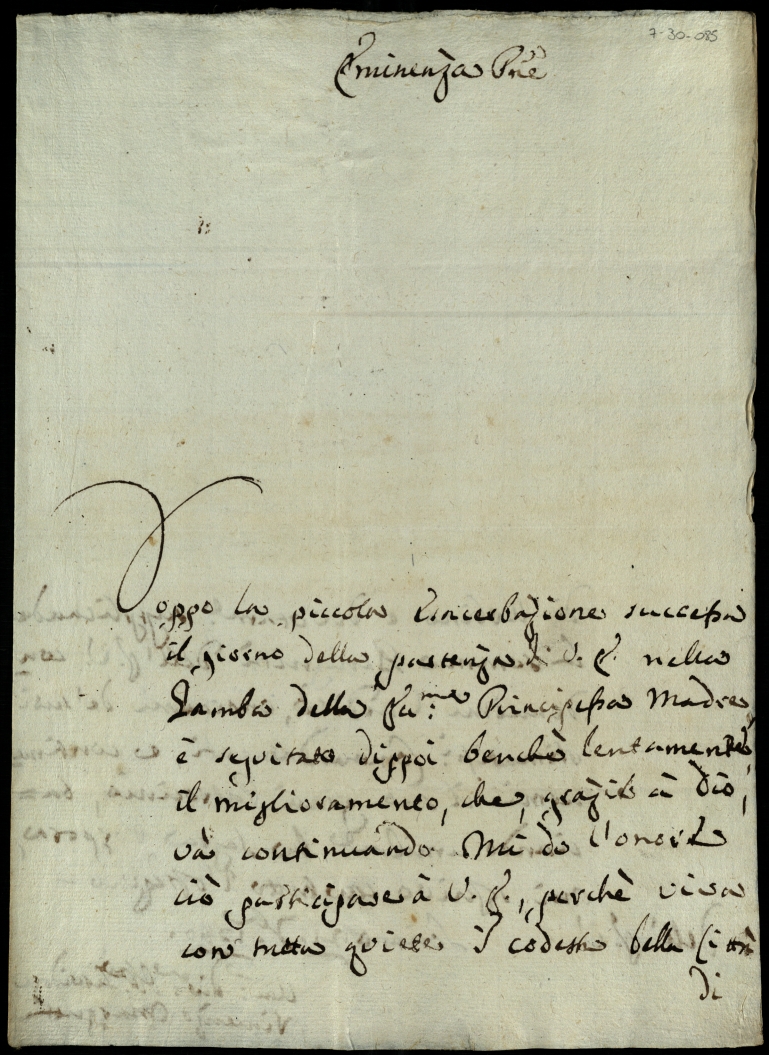 7-30-085
Eminenza Pn̄e
Doppo la piccola Esacerbazione successa
il giorno della partenza di V. E. nella
Gamba della Ecc:ma Principessa Madre,
è seguitato dippoi benchè lentamente,
il miglioramento, che, grazie à Dio,
và continuando. Mi dò l'onore di
ciò participare à V. E., perchè viva
con tutta quiete ī codesta bella Città
di